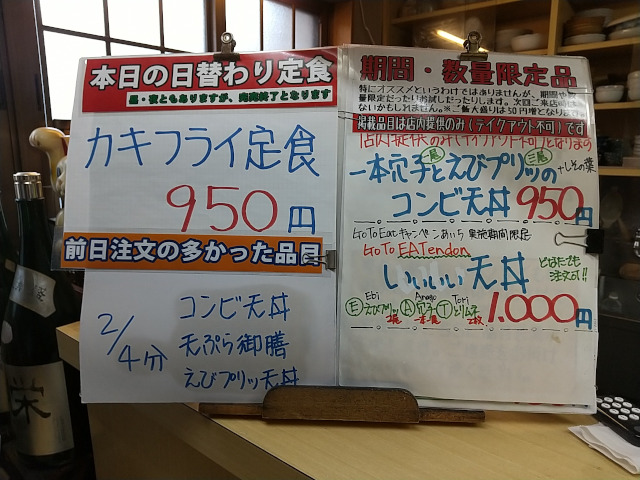 本日の日替わり定食
昼・夜ともありますが、完売終了となります
カキフライ定食
950円
前日注文の多かった品目
2/4分
コンビ天丼
天ぷら御膳
えびプリッ天丼
期間・数量限定品
特にオススメというわけではありませんが、期間や
量限定だったりお試しだったりします。次回ご来店時は
ないかもしれません。※ご飯大盛りは50円増となります。
掲載品目は店内提供のみ(テイクアウト不可)です
店内提供のみ(テイクアウト不可)となります
一本穴子とえびプリッの
二尾
+しその葉
コンビ天丼 950円
GoToEatキャンペーンあいち 実施期間限定
GoTo EATendon
いいいい天丼
どなたでも
注文可!!
Ebi Anago Tori
E えびプリッ A 穴子 T とりムネ
2尾 一本 2枚
1.000円
栄